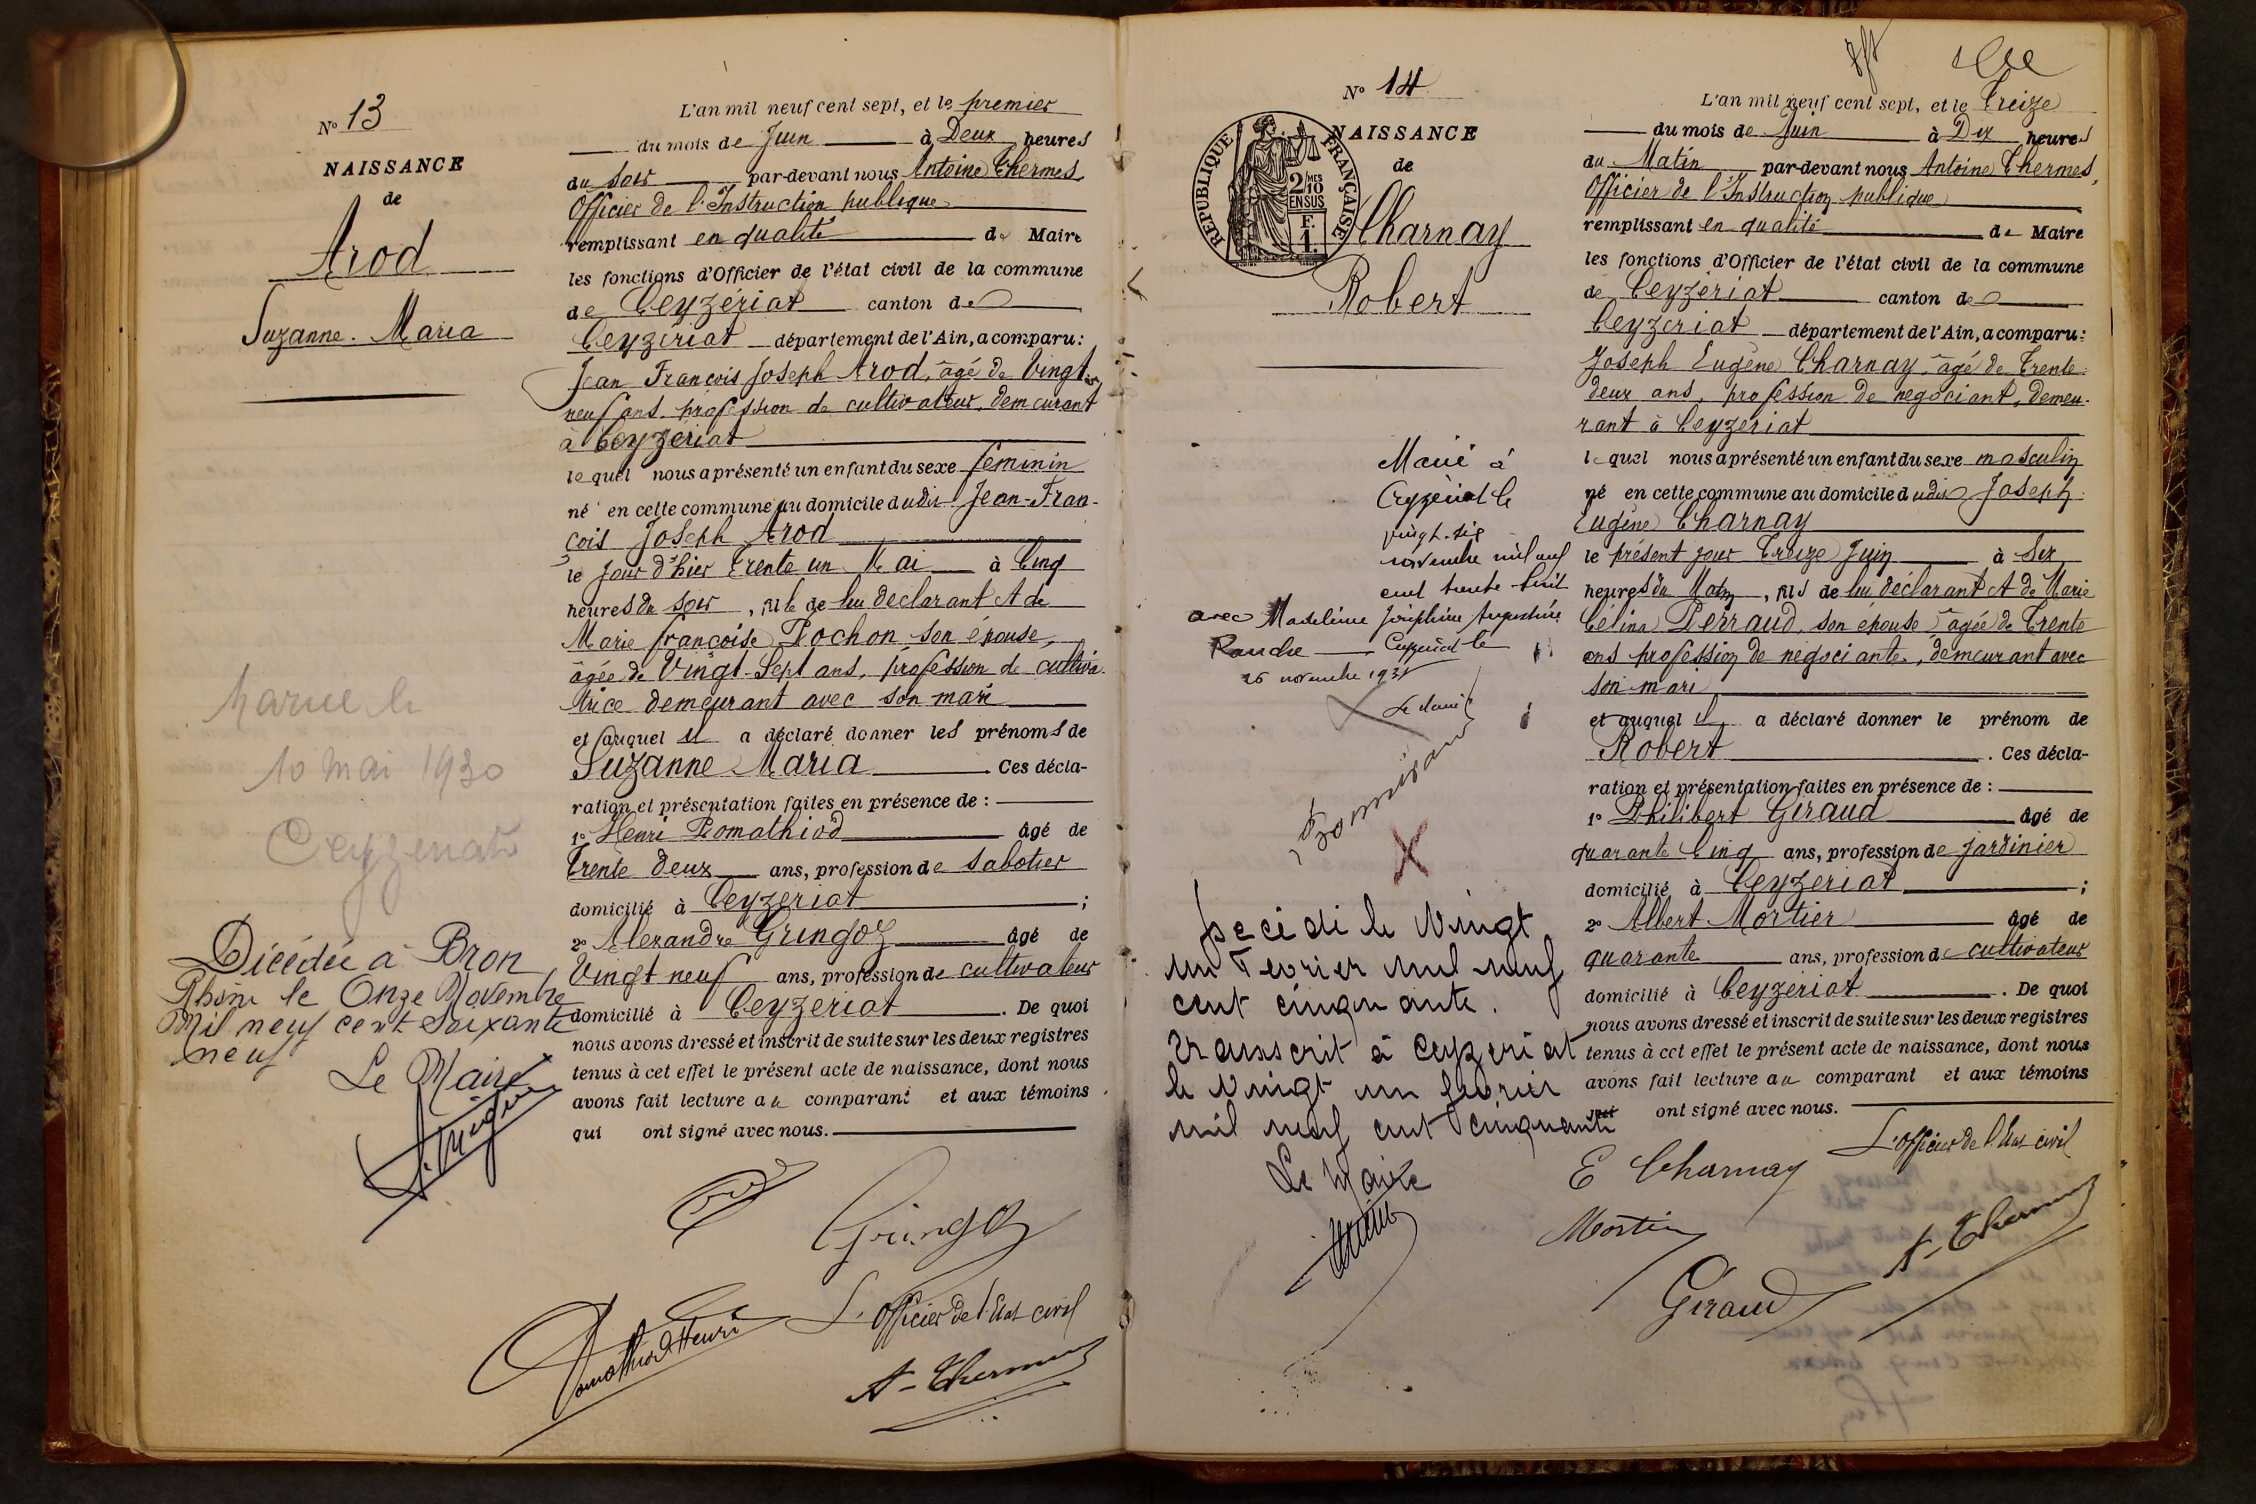 N° 13
NAISSANCE
de
Arod
Suzanne. Maria
Mariée le
10 mai 1930
Ceyzeriat
Décédée à Bron
Rhône le Onze Novembre
Mil neuf cent Soixante
neuf
Le Maire
L'an mil neuf cent sept, et le premier
du mois de Juin à Deux heures
du soir par-devant nous Antoine Thermes,
Officier de l'Instruction publique
remplissant en qualité de Maire
les fonctions d'Officier de l'état civil de la commune
de Ceyzériat canton de
Ceyzériat département de l'Ain, a comparu:
Jean François Joseph Arod, âgé de Vingt
neuf ans, profession de cultivateur, demeurant
à Ceyzériat
lequel nous a présenté un enfant du sexe féminin
né en cette commune au domicile dudit Jean-Fran-
çois Joseph Arod
le jour d'hier trente un Mai à Cinq
heures du soir, fille de lui déclarant et de
Marie françoise Pochon son épouse,
âgée de Vingt-Sept ans, profession de cultiva-
trice demeurant avec son mari
et auquel il a déclaré donner les prénoms de
Suzanne Maria Ces décla-
ration et présentation faites en présence de :
1° Henri Pomathiod âgé de
Trente deux ans, profession de sabotier
domicilié à Ceyzériat ;
2° Alexandre Gringoz âgé de
Vingt neuf ans, profession de cultivateur
domicilié à Ceyzériat . De quoi
nous avons dressé et inscrit de suite sur les deux registres
tenus à cet effet le présent acte de naissance, dont nous
avons fait lecture au comparant et aux témoins
qui ont signé avec nous.
Gringoz
Pomathiod Henri
L'officier de l'Etat civil
A. Thermes
N° 14
NAISSANCE
de
RÉPUBLIQUE FRANÇAISE
2/10MES
EN SUS
F.
1.
Charnay
Robert
Marié à
Ceyzériat le
vingt-six
novembre mil neuf
cent trente-huit
avec Madeleine Joséphine Augustine
Ranche Ceyzériat le
26 novembre 1938
Le Maire
Décédé le Vingt
un Fevrier mil neuf
cent cinquante.
Transcrit à Ceyzeriat
le Vingt un fevrier
mil neuf cent cinquante
Le Maire
L'an mil neuf cent sept, et le Treize
du mois de Juin à Dix heures
du Matin par-devant nous Antoine Thermes,
Officier de l'Instruction publique
remplissant en qualité de Maire
les fonctions d'Officier de l'état civil de la commune
de Ceyzériat canton de
Ceyzériat département de l'Ain, a comparu:
Joseph Eugène Charnay, âgé de Trente
deux ans, profession de négociant, demeu-
rant à Ceyzériat
lequel nous a présenté un enfant du sexe masculin
né en cette commune au domicile dudit Joseph
Eugène Charnay
le présent jour Treize Juin à Six
heures du Matin, fils de lui déclarant et de Marie
Célina Perraud, son épouse âgée de Trente
ans profession de négociante, demeurant avec
son mari
et auquel il a déclaré donner le prénom de
Robert . Ces décla-
ration et présentation faites en présence de :
1° Philibert Giraud âgé de
quarante Cinq ans, profession de jardinier
domicilié à Ceyzériat ;
2° Albert Mortier âgé de
quarante ans, profession de cultivateur
domicilié à Ceyzériat . De quoi
nous avons dressé et inscrit de suite sur les deux registres
tenus à cet effet le présent acte de naissance, dont nous
avons fait lecture au comparant et aux témoins
qui ont signé avec nous.
L'officier de l'Etat civil
E Charnay
Mortier
A. Thermes
Giraud